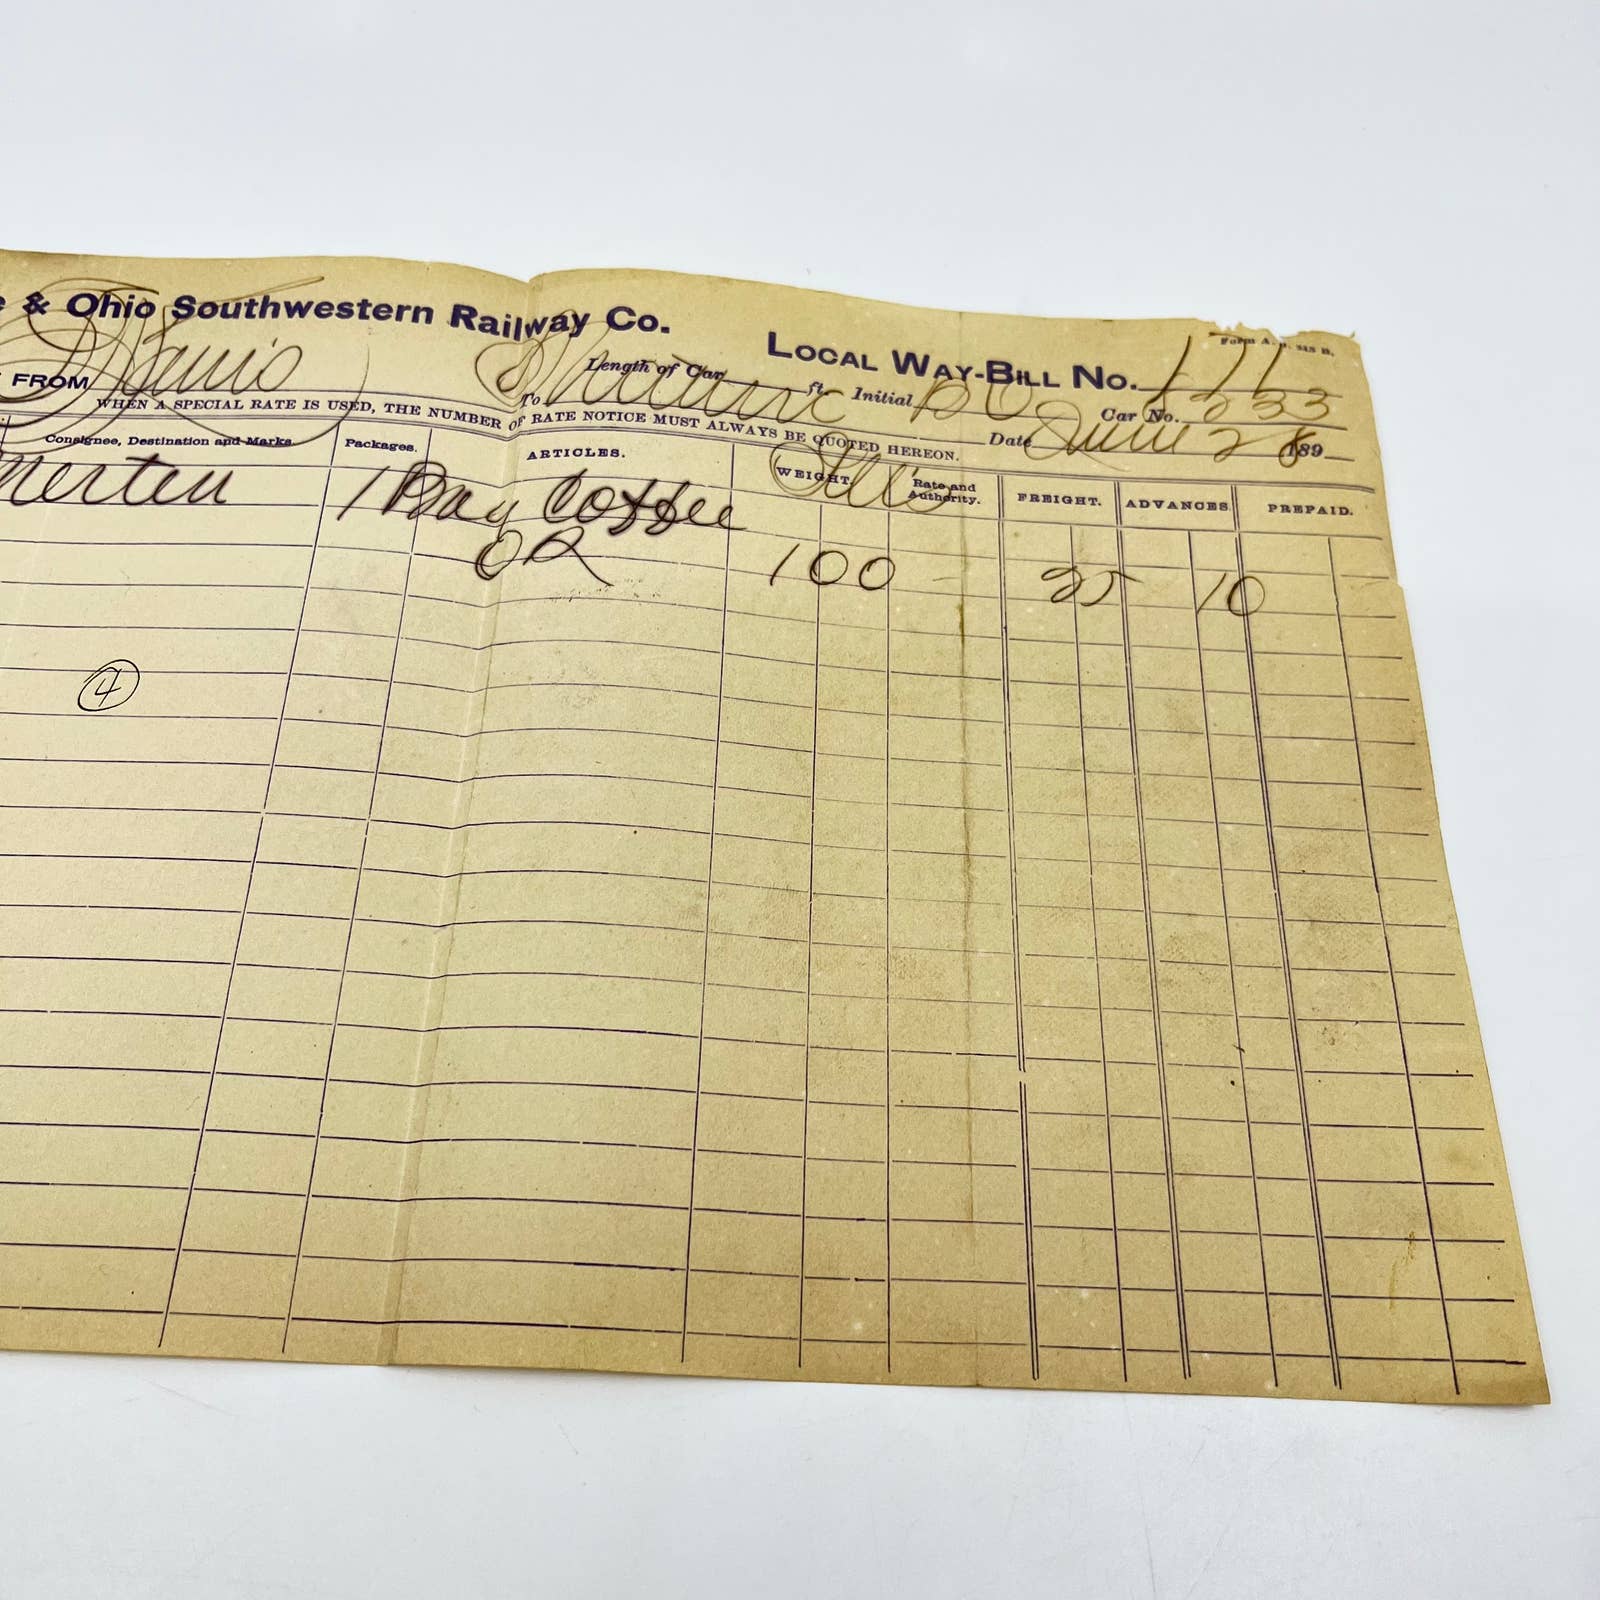 & Ohio Southwestern Railway Co.
LOCAL WAY-BILL No. 171
Form A.
Length of Car ft. Initial B O Car No. 1233
FROM To Date June 28 189
WHEN A SPECIAL RATE IS USED, THE NUMBER OF RATE NOTICE MUST ALWAYS BE QUOTED HEREON.
Consignee, Destination and Marks. Packages. ARTICLES. WEIGHT. Rate and Authority. FREIGHT. ADVANCES. PREPAID.
Merten 1 Bag Coffee
OR 100 25 10
4